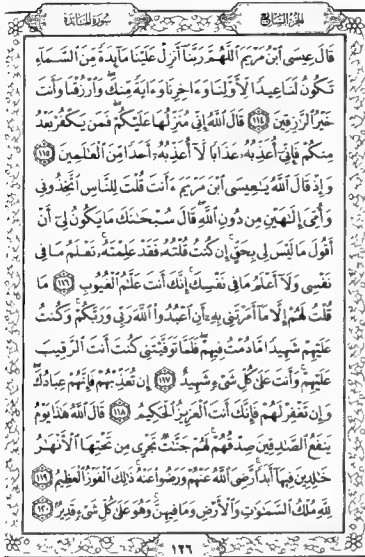 الجزء السابع
سورة المائدة
قَالَ عِيسَى ٱبْنُ مَرْيَمَ ٱللَّهُمَّ رَبَّنَآ أَنزِلْ عَلَيْنَا مَآئِدَةً مِّنَ ٱلسَّمَآءِ
تَكُونُ لَنَا عِيدًا لِّأَوَّلِنَا وَءَاخِرِنَا وَءَايَةً مِّنكَ ۖ وَٱرْزُقْنَا وَأَنتَ
خَيْرُ ٱلرَّٰزِقِينَ ١١٤ قَالَ ٱللَّهُ إِنِّى مُنَزِّلُهَا عَلَيْكُمْ ۖ فَمَن يَكْفُرْ بَعْدُ
مِنكُمْ فَإِنِّىٓ أُعَذِّبُهُۥ عَذَابًا لَّآ أُعَذِّبُهُۥٓ أَحَدًا مِّنَ ٱلْعَٰلَمِينَ ١١٥
وَإِذْ قَالَ ٱللَّهُ يَٰعِيسَى ٱبْنَ مَرْيَمَ ءَأَنتَ قُلْتَ لِلنَّاسِ ٱتَّخِذُونِى
وَأُمِّىَ إِلَٰهَيْنِ مِن دُونِ ٱللَّهِ ۖ قَالَ سُبْحَٰنَكَ مَا يَكُونُ لِىٓ أَنْ
أَقُولَ مَا لَيْسَ لِى بِحَقٍّ ۚ إِن كُنتُ قُلْتُهُۥ فَقَدْ عَلِمْتَهُۥ ۚ تَعْلَمُ مَا فِى
نَفْسِى وَلَآ أَعْلَمُ مَا فِى نَفْسِكَ ۚ إِنَّكَ أَنتَ عَلَّٰمُ ٱلْغُيُوبِ ١١٦ مَا
قُلْتُ لَهُمْ إِلَّا مَآ أَمَرْتَنِى بِهِۦٓ أَنِ ٱعْبُدُوا۟ ٱللَّهَ رَبِّى وَرَبَّكُمْ ۚ وَكُنتُ
عَلَيْهِمْ شَهِيدًا مَّا دُمْتُ فِيهِمْ ۖ فَلَمَّا تَوَفَّيْتَنِى كُنتَ أَنتَ ٱلرَّقِيبَ
عَلَيْهِمْ ۚ وَأَنتَ عَلَىٰ كُلِّ شَىْءٍ شَهِيدٌ ١١٧ إِن تُعَذِّبْهُمْ فَإِنَّهُمْ عِبَادُكَ ۖ
وَإِن تَغْفِرْ لَهُمْ فَإِنَّكَ أَنتَ ٱلْعَزِيزُ ٱلْحَكِيمُ ١١٨ قَالَ ٱللَّهُ هَٰذَا يَوْمُ
يَنفَعُ ٱلصَّٰدِقِينَ صِدْقُهُمْ ۚ لَهُمْ جَنَّٰتٌ تَجْرِى مِن تَحْتِهَا ٱلْأَنْهَٰرُ
خَٰلِدِينَ فِيهَآ أَبَدًا ۚ رَّضِىَ ٱللَّهُ عَنْهُمْ وَرَضُوا۟ عَنْهُ ۚ ذَٰلِكَ ٱلْفَوْزُ ٱلْعَظِيمُ ١١٩
لِلَّهِ مُلْكُ ٱلسَّمَٰوَٰتِ وَٱلْأَرْضِ وَمَا فِيهِنَّ ۚ وَهُوَ عَلَىٰ كُلِّ شَىْءٍ قَدِيرٌ ١٢٠
١٢٦